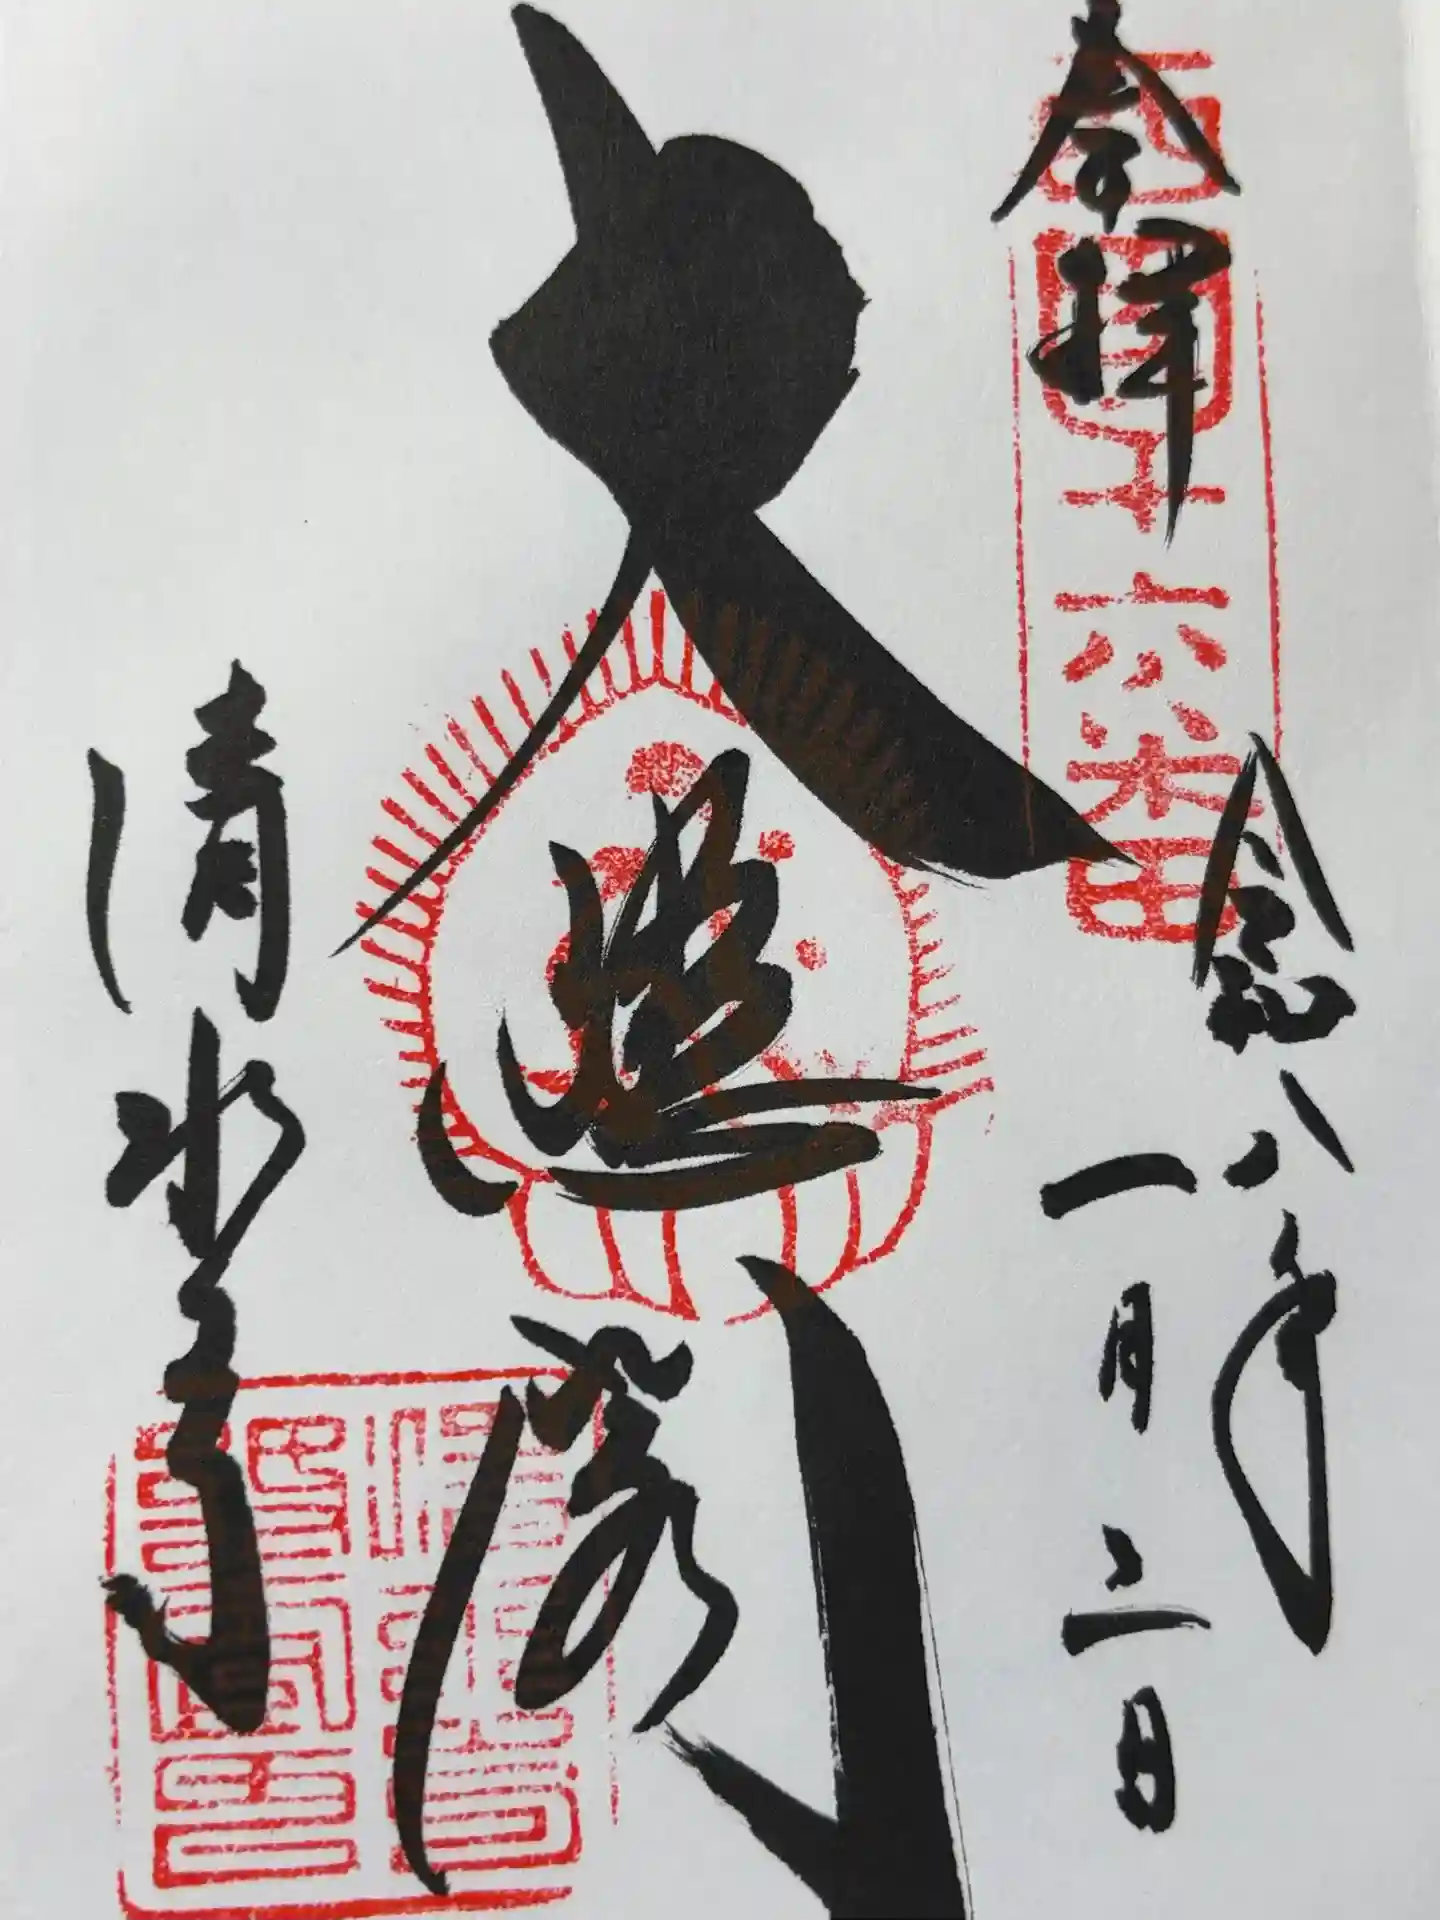 奉拝
西国十六番
令和八年
一月二日
大悲閣
清水寺